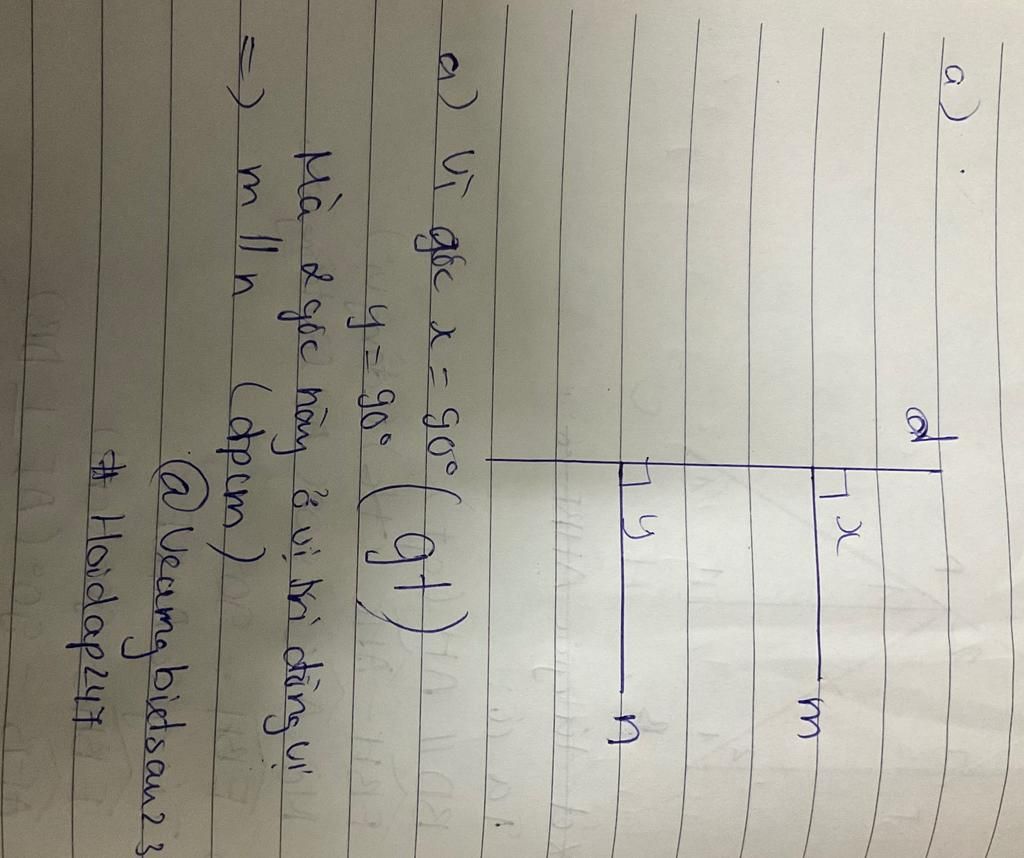 a)
d
x
m
y
n
a) Vì góc x = 90° (gt)
y = 90°
Mà 2 góc này ở vị trí đồng vị
=) m // n (đpcm)
# Hoidap247